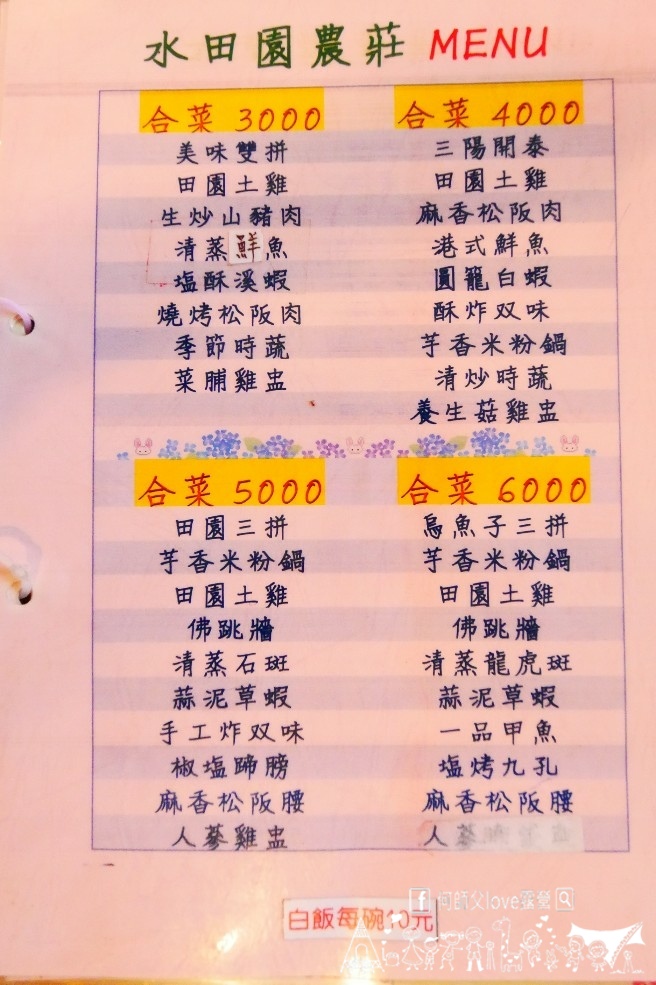 水田園農莊 MENU
合菜 3000
美味雙拼
田園土雞
生炒山豬肉
清蒸鮮魚
塩酥溪蝦
燒烤松阪肉
季節時蔬
菜脯雞盅
合菜 4000
三陽開泰
田園土雞
麻香松阪肉
港式鮮魚
圓籠白蝦
酥炸双味
芋香米粉鍋
清炒時蔬
養生菇雞盅
合菜 5000
田園三拼
芋香米粉鍋
田園土雞
佛跳牆
清蒸石斑
蒜泥草蝦
手工炸双味
椒塩蹄膀
麻香松阪腰
人蔘雞盅
合菜 6000
烏魚子三拼
芋香米粉鍋
田園土雞
佛跳牆
清蒸龍虎斑
蒜泥草蝦
一品甲魚
塩烤九孔
麻香松阪腰
人蔘
何師父love露營
白飯每碗10元